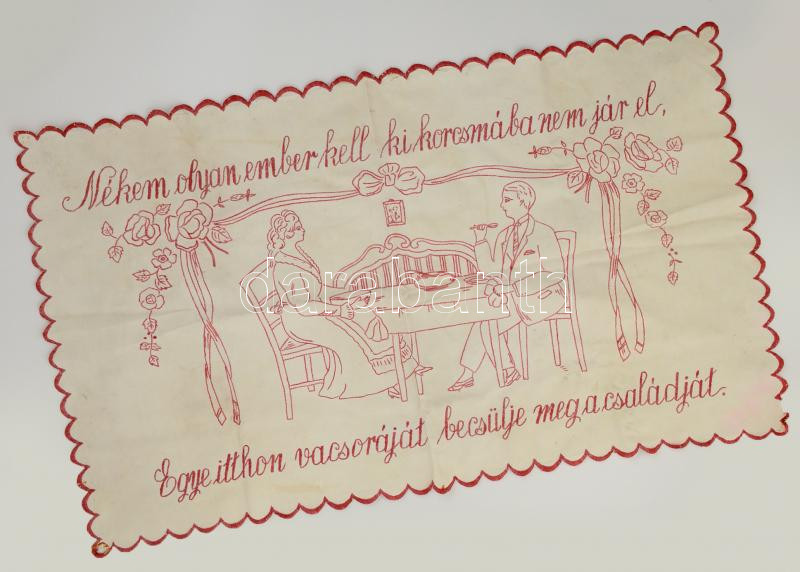 Nékem olyan ember kell ki korcsmába nem jár el,
darabanth
Egye itthon vacsoráját becsülje meg a családját.